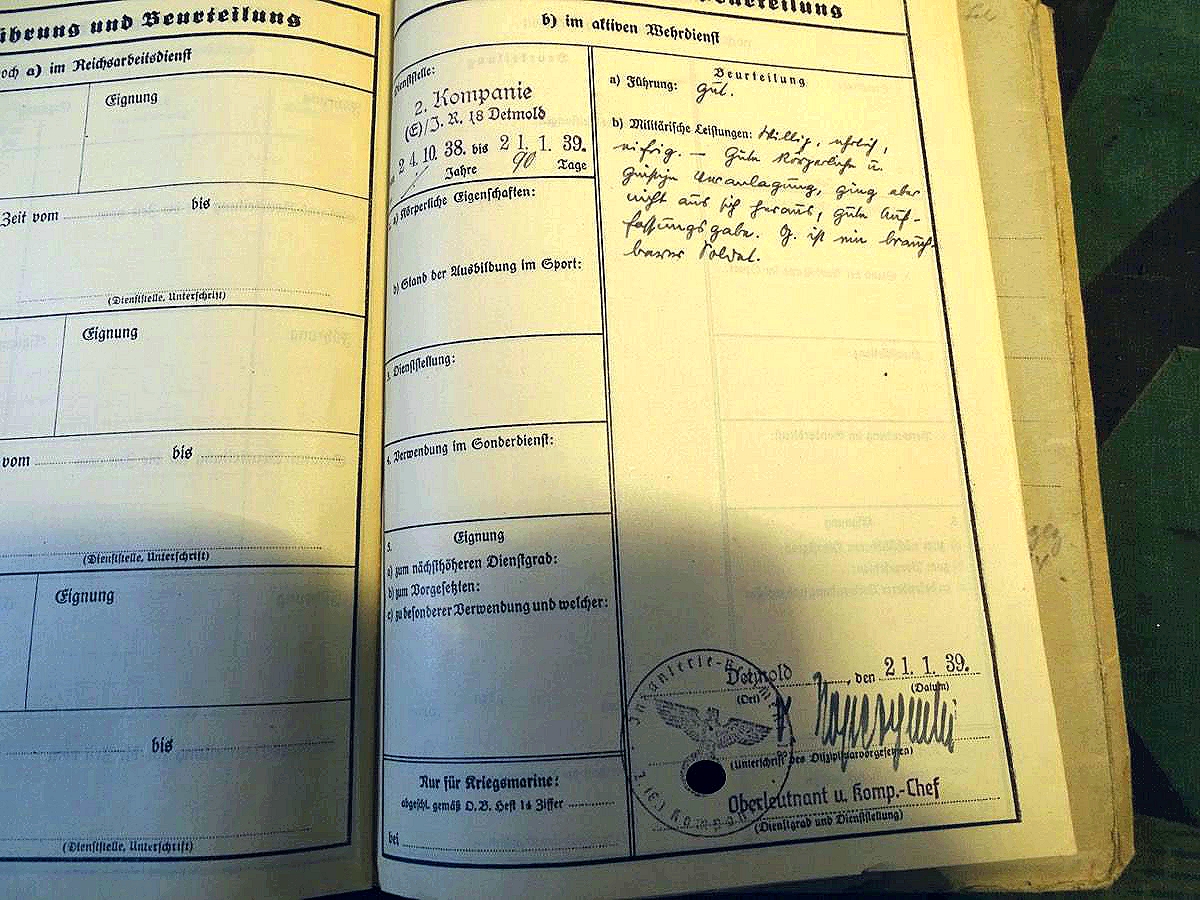 ührung und Beurteilung
noch a) im Reichsarbeitsdienst
Eignung
Zeit vom bis
(Dienststelle, Unterschrift)
Eignung
vom bis
(Dienststelle, Unterschrift)
Eignung
bis
(Dienststelle, Unterschrift)
Beurteilung
b) im aktiven Wehrdienst
Dienststelle:
2. Kompanie
(E)/J. R. 18 Detmold
24. 10. 38. bis 21. 1. 39.
Jahre 90 Tage
a) Körperliche Eigenschaften:
b) Stand der Ausbildung im Sport:
3. Dienststellung:
4. Verwendung im Sonderdienst:
5. Eignung
a) zum nächsthöheren Dienstgrad:
b) zum Vorgesetzten:
c) zu besonderer Verwendung und welcher:
Nur für Kriegsmarine:
abgeschl. gemäß O.B. Heft 14 Ziffer
bei
Beurteilung
a) Führung: gut.
b) Militärische Leistungen: Willig, ehrlich,
eifrig. — Gute körperliche u.
geistige Veranlagung, ging aber
nicht aus sich heraus, gute Auf-
fassungsgabe. G. ist ein brauch-
barer Soldat.
Detmold, den 21. 1. 39.
(Ort) (Datum)
(Unterschrift des Disziplinarvorgesetzten)
Oberleutnant u. Komp.-Chef
(Dienstgrad und Dienststellung)
Infanterie-